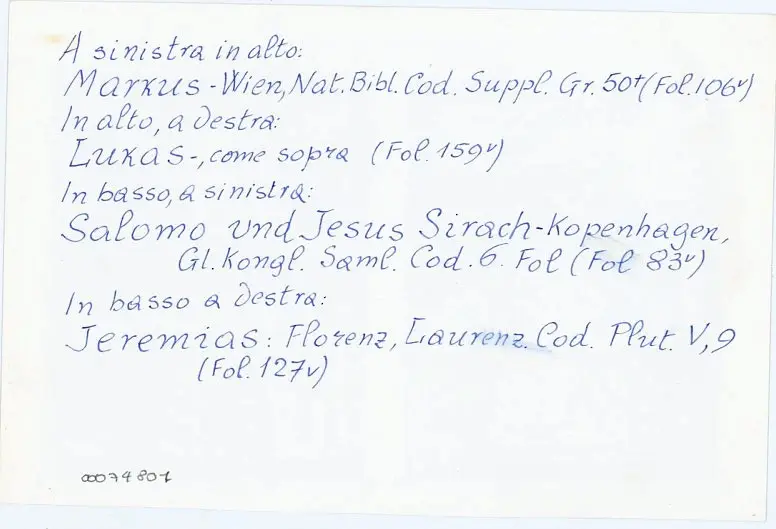 A sinistra in alto:
Markus - Wien, Nat. Bibl. Cod. Suppl. Gr. 50+ (Fol. 106v)
In alto, a destra:
Lukas -, come sopra (Fol. 159v)
In basso, a sinistra:
Salomo und Jesus Sirach - Kopenhagen,
Gl. Kongl. Saml. Cod. 6. Fol (Fol 83v)
In basso a destra:
Jeremias: Florenz, Laurenz. Cod. Plut. V, 9
(Fol. 127v)
00074801